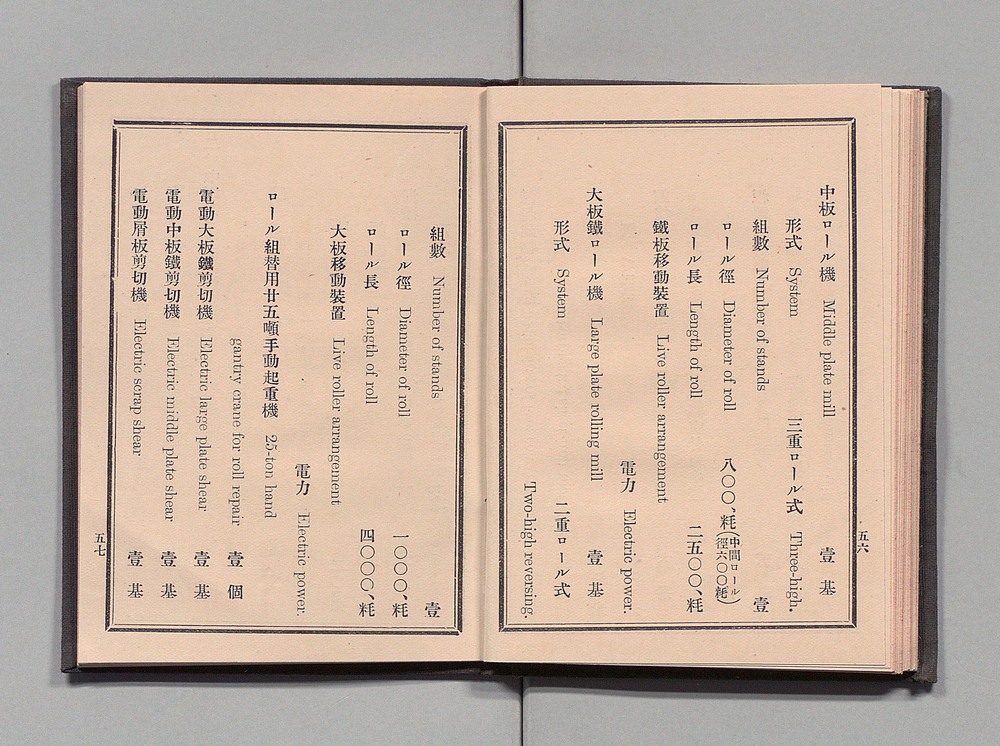 中板ロール機 Middle plate mill 壹基
形式 System 三重ロール式 Three-high.
組數 Number of stands 壹
ロール徑 Diameter of roll 八〇〇、粍(中間ロール徑六〇〇粍)
ロール長 Length of roll 二五〇〇、粍
鐵板移動裝置 Live roller arrangement
電力 Electric power.
大板鐵ロール機 Large plate rolling mill 壹基
形式 System 二重ロール式
Two-high reversing.
五六
組數 Number of stands 壹
ロール徑 Diameter of roll 一〇〇〇、粍
ロール長 Length of roll 四〇〇〇、粍
大板移動裝置 Live roller arrangement
電力 Electric power.
ロール組替用廿五噸手動起重機 25-ton hand
gantry crane for roll repair 壹個
電動大板鐵剪切機 Electric large plate shear 壹基
電動中板鐵剪切機 Electric middle plate shear 壹基
電動屑板剪切機 Electric scrap shear 壹基
五七